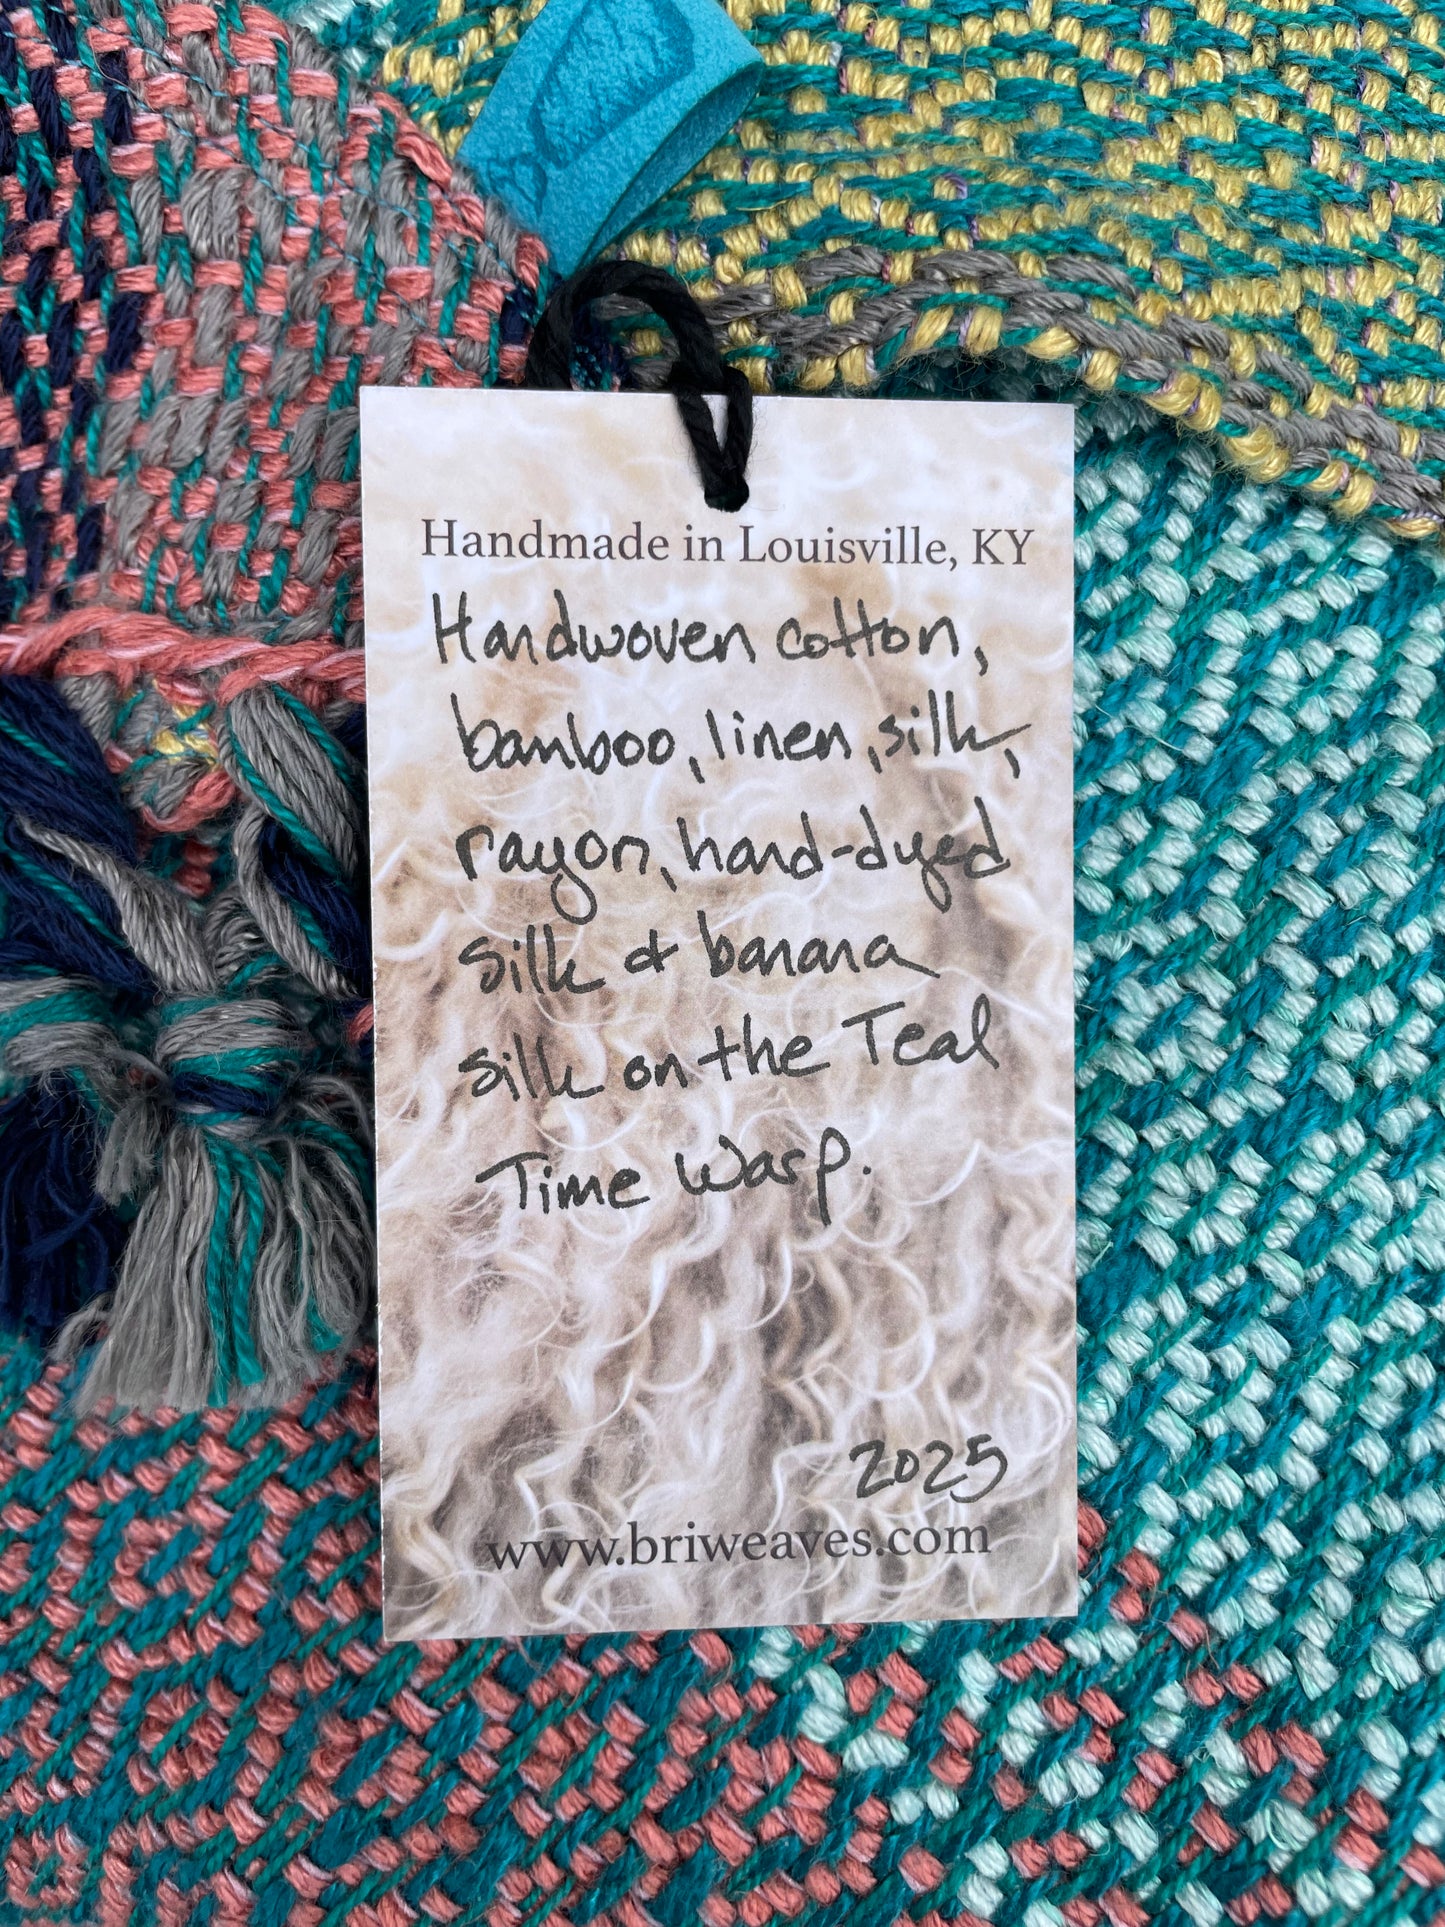 Handmade in Louisville, KY
Handwoven cotton,
bamboo, linen, silk,
rayon, hand-dyed
silk & banana
silk on the Teal
Time Warp.
2025
www.briweaves.com